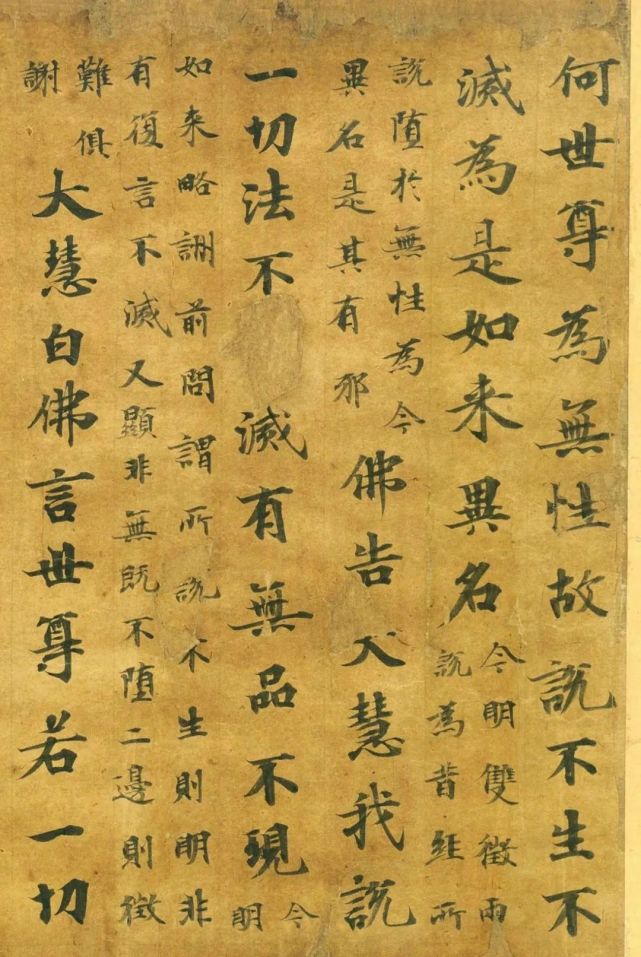 何世尊為無性故說不生不
滅為是如来異名
今明雙徵兩
說為昔經所
說墮於無性為今
異名是其有邪
佛告大慧我說
一切法不滅有無品不現
今
明
如来略詶前問謂所說不生則明非
有復言不滅又顯非無既不墮二邊則徵
難俱
謝
大慧白佛言世尊若一切